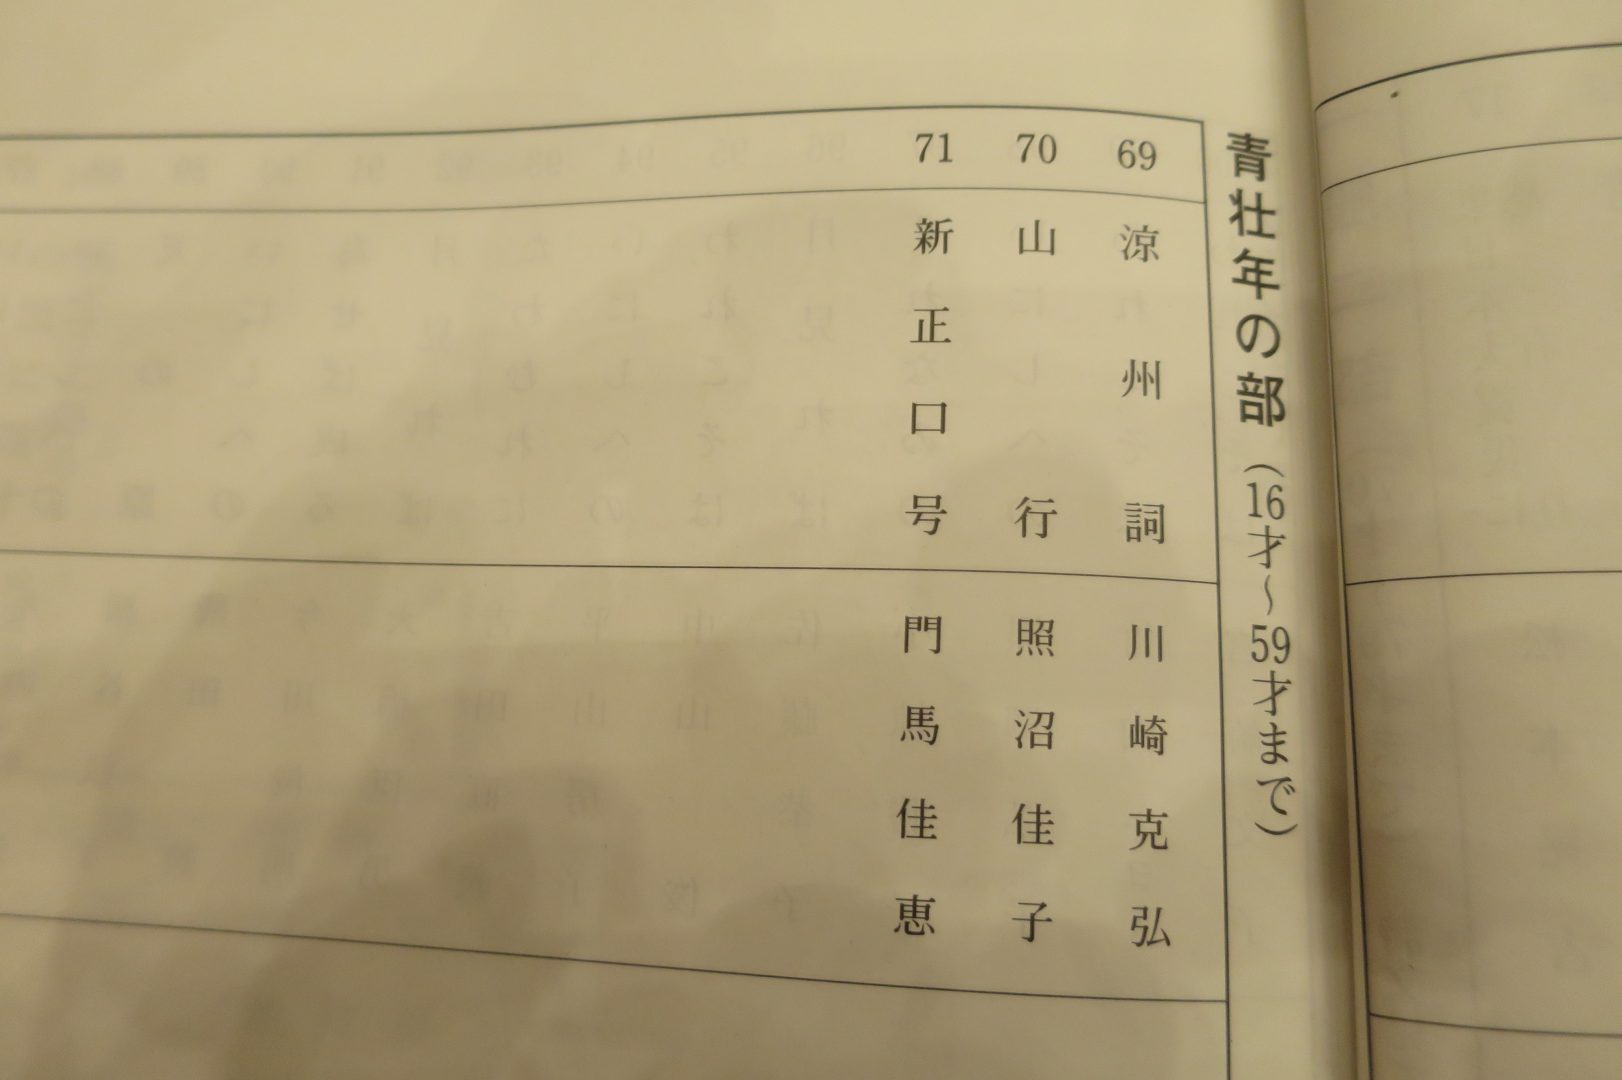 青壮年の部(16才~59才まで)
69 涼州詞 川崎克弘
70 山行 照沼佳子
71 新正口号 門馬佳恵